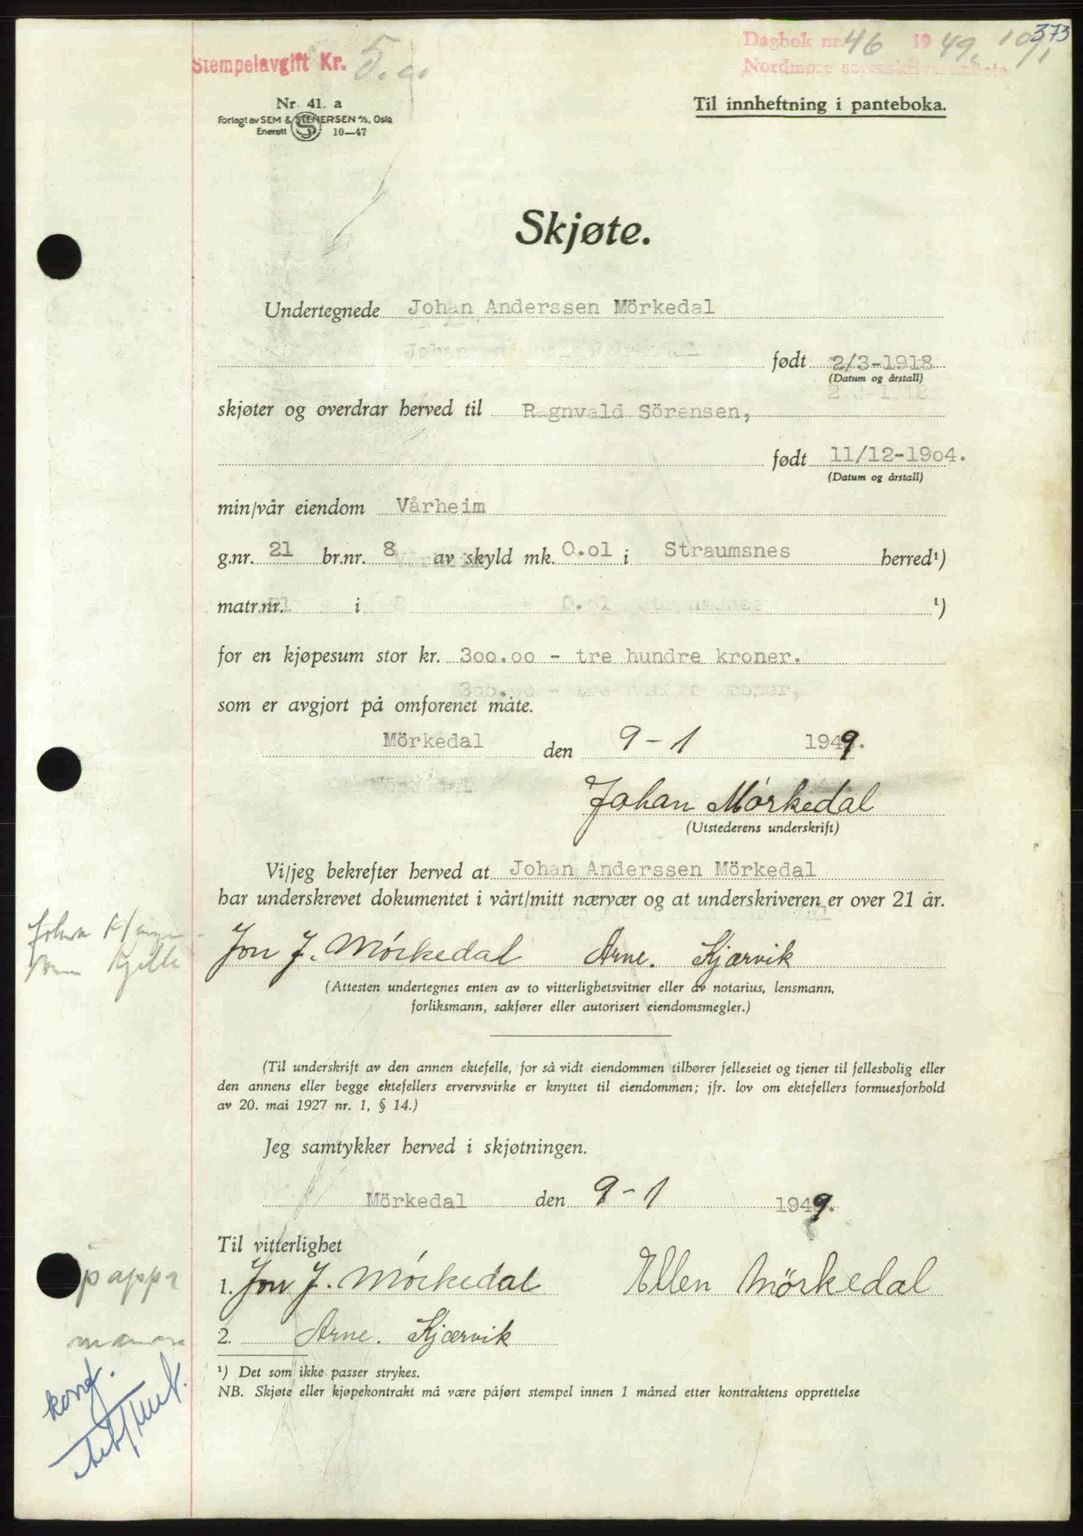 373
Dagbok nr. 46 1949. 10/1
Nordmøre sorenskriverembete
Stempelavgift Kr. 5.00
Nr. 41. a
Forlagt av SEM & STENERSEN A/S, Oslo
Enerett S 10—47
Til innheftning i panteboka.
Skjøte.
Undertegnede Johan Anderssen Mörkedal
født 2/3-1918
(Datum og årstall)
skjøter og overdrar herved til Ragnvald Sörensen,
født 11/12-19o4.
(Datum og årstall)
min/vår eiendom Vårheim
g.nr. 21 br.nr. 8 av skyld mk. 0.o1 i Straumsnes herred¹)
matr.nr. i ¹)
for en kjøpesum stor kr. 3oo.oo - tre hundre kroner.
som er avgjort på omforenet måte.
Mörkedal den 9-1 1949.
Johan Mórkedal
(Utstederens underskrift)
Vi/jeg bekrefter herved at Johan Anderssen Mörkedal
har underskrevet dokumentet i vårt/mitt nærvær og at underskriveren er over 21 år.
Jon J. Mórkedal Arne. Kjærvik
(Attesten undertegnes enten av to vitterlighetsvitner eller av notarius, lensmann,
forliksmann, sakfører eller autorisert eiendomsmegler.)
(Til underskrift av den annen ektefelle, for så vidt eiendommen tilhører felleseiet og tjener til fellesbolig eller
den annens eller begge ektefellers ervervsvirke er knyttet til eiendommen; jfr. lov om ektefellers formuesforhold
av 20. mai 1927 nr. 1, § 14.)
Jeg samtykker herved i skjøtningen.
Mörkedal den 9-1 1949.
Til vitterlighet
1. Jon J. Mórkedal Ellen Mörkedal
2. Arne. Kjærvik
pappa
mamma
konf.
¹) Det som ikke passer strykes.
NB. Skjøte eller kjøpekontrakt må være påført stempel innen 1 måned etter kontraktens opprettelse